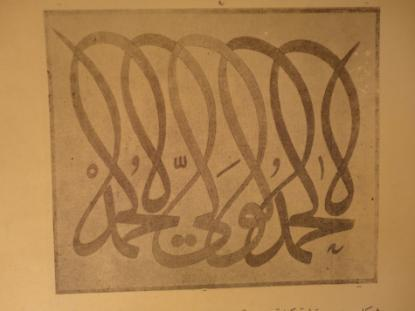 الحمد لولي الحمد